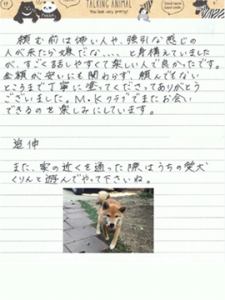 TALKING ANIMAL
頼む前は怖い人や、強引な感じの
人が来たら嫌だな、、、、と身構えていました
が、すごく話しやすくて楽しい人で良かったです。
金額が安いにも関わらず、頼んでもない
ところまで丁寧に塗ってくださってありがとう
ございました。M・Kクラブでまたお会い
できるのを楽しみにしています。
追伸
また、家の近くを通った際はうちの柴犬
くりんと遊んでやって下さいね。